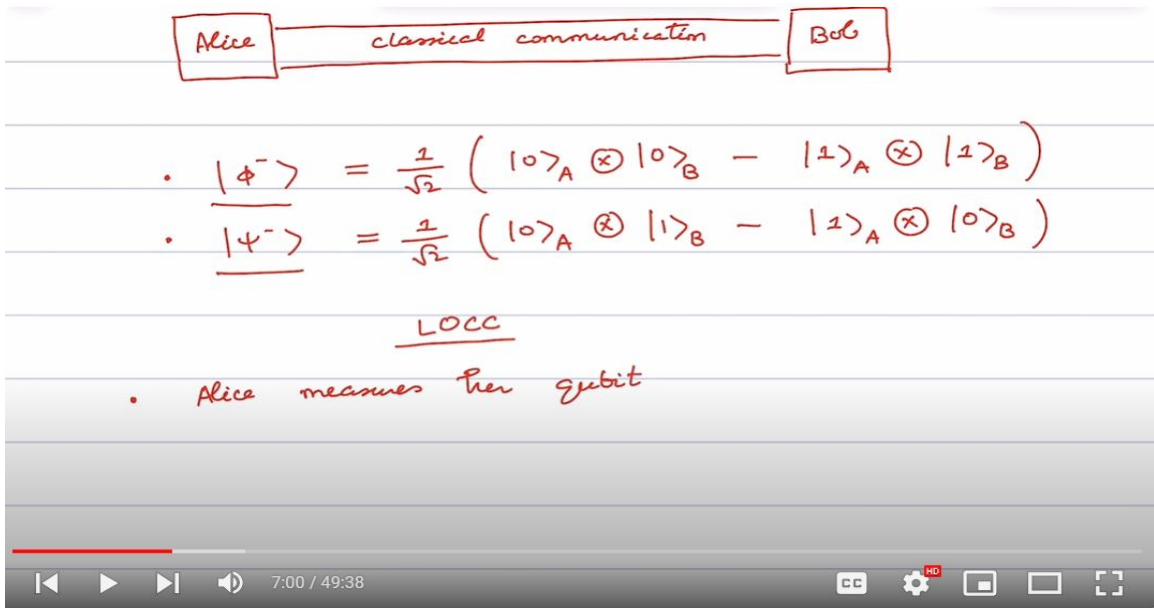 Alice classical communication Bob
• |ϕ⁻⟩ = 1/√2 ( |0⟩_A ⊗ |0⟩_B − |1⟩_A ⊗ |1⟩_B )
• |ψ⁻⟩ = 1/√2 ( |0⟩_A ⊗ |1⟩_B − |1⟩_A ⊗ |0⟩_B )
LOCC
• Alice measures her qubit
7:00 / 49:38 CC HD